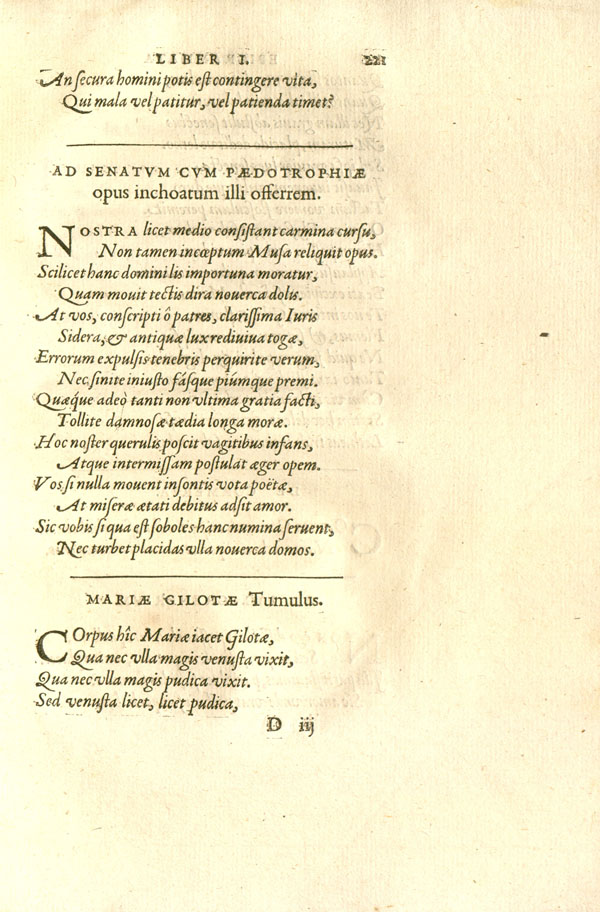 LIBER I. 221
An secura homini potis est contingere vita,
Qui mala vel patitur, vel patienda timet?
AD SENATVM CVM PÆDOTROPHIÆ
opus inchoatum illi offerrem.
NOSTRA licet medio consistant carmina cursu,
Non tamen incœptum Musa reliquit opus.
Scilicet hanc domini lis importuna moratur,
Quam mouit tectis dira nouerca dolis.
At vos, conscripti ô patres, clarissima Iuris
Sidera, & antiquæ lux rediuiua togæ,
Errorum expulsis tenebris perquirite verum,
Nec sinite iniusto fásque piúmque premi.
Quæq́ue adeò tanti non vltima gratia facti,
Tollite damnosæ tædia longa moræ.
Hoc noster querulis poscit vagitibus infans,
Atque intermissam postulat æger opem.
Vos si nulla mouent insontis vota poëtæ,
At miseræ ætati debitus adsit amor.
Sic vobis si qua est soboles hanc numina seruent,
Nec turbet placidas vlla nouerca domos.
MARIÆ GILOTÆ Tumulus.
COrpus hîc Mariæ iacet Gilotæ,
Qua nec vlla magis venusta vixit,
Qua nec vlla magis pudica vixit.
Sed venusta licet, licet pudica,
D iij